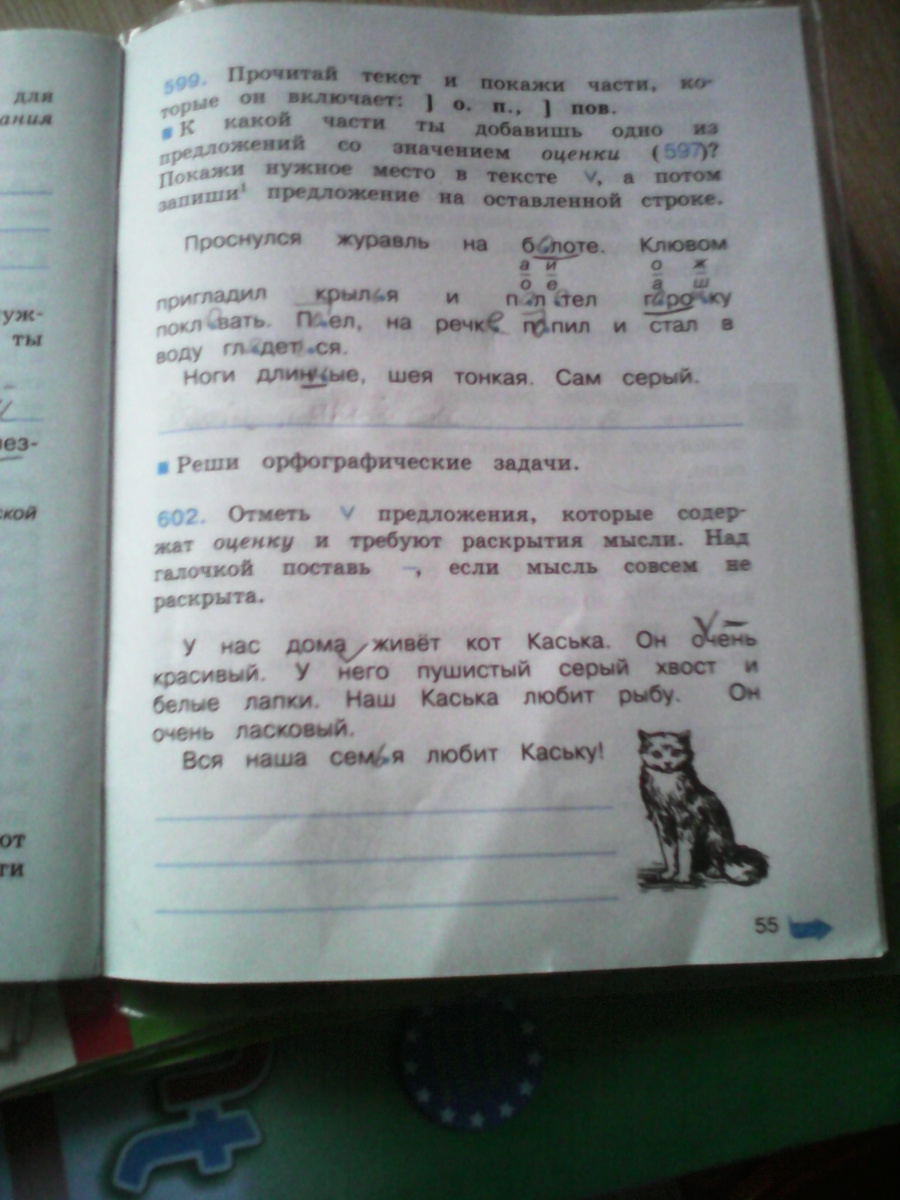 для
ания
уж-
ты
ез-
ской
от
ги
599. Прочитай текст и покажи части, ко-
торые он включает: ] о. п., ] пов.
К какой части ты добавишь одно из
предложений со значением оценки (597)?
Покажи нужное место в тексте v, а потом
запиши¹ предложение на оставленной строке.
Проснулся журавль на болоте. Клювом
а и о ж
о е а ш
пригладил крылья и полетел горошку
поклевать. Поел, на речке попил и стал в
воду глядеться.
Ноги длинные, шея тонкая. Сам серый.
Реши орфографические задачи.
602. Отметь v предложения, которые содер-
жат оценку и требуют раскрытия мысли. Над
галочкой поставь –, если мысль совсем не
раскрыта.
У нас дома живёт кот Каська. Он очень
красивый. У него пушистый серый хвост и
белые лапки. Наш Каська любит рыбу. Он
очень ласковый.
Вся наша семья любит Каську!
55